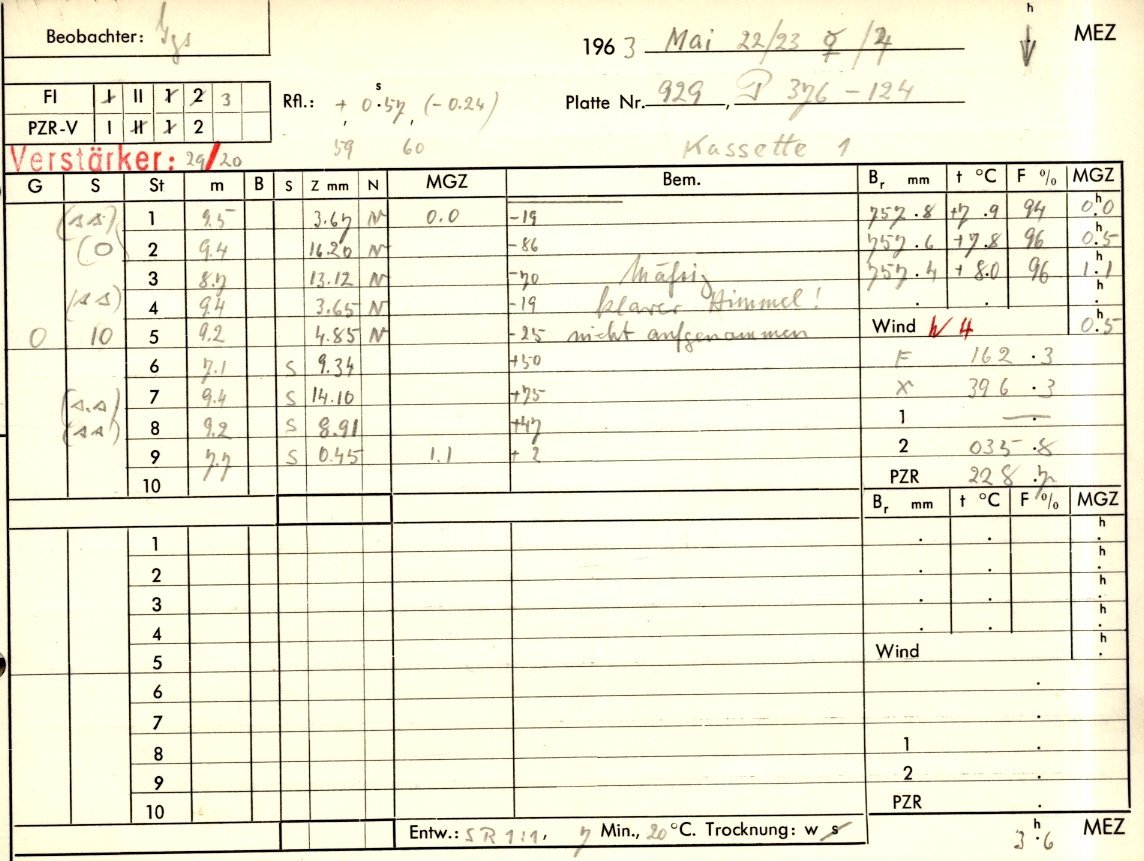 h
Beobachter:
196 3 Mai 22/23 ☿ / ♃ MEZ
FI I II 1 2 3
Rfl.: + 0.57 s (-0.24)
Platte Nr. 929, P 376-124
PZR-V I II 1 2
59 60
Kassette 1
Verstärker: 29/20
G S St m B S Z mm N MGZ Bem. Br mm t °C F % MGZ
(ss) 1 9.5 3.67 N 0.0 -19 757.8 +7.9 94 0h.0
(0) 2 9.4 16.20 N -86 757.6 +7.8 96 0h.5
3 8.7 13.12 N -70 Mäßig 757.4 +8.0 96 1h.1
(ss) 4 9.4 3.65 N -19 klarer Himmel! . . h.
0 10 5 9.2 4.85 N -25 nicht aufgenommen Wind W 4 0h.5
6 7.1 S 9.34 +50 F 162.3
(ss) 7 9.4 S 14.10 +75 X 396.3
(ss) 8 9.2 S 8.91 +47 1 — .
9 7.7 S 0.45 1.1 +2 2 035.8
10 PZR 228.7
Br mm t °C F % MGZ
1 . . h.
2 . . h.
3 . . h.
4 . . h.
5 Wind h.
6 .
7 .
8 1 .
9 2 .
10 PZR .
Entw.: SR 1:1, 7 Min., 20 °C. Trocknung: w s
3h.6 MEZ